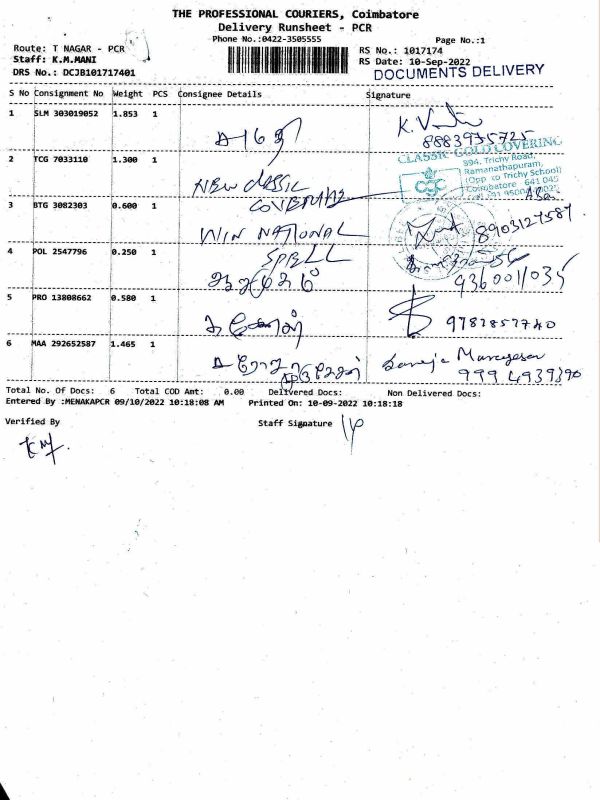 THE PROFESSIONAL COURIERS, Coimbatore
Delivery Runsheet - PCR
Phone No.:0422-3505555
Page No.:1
Route: T NAGAR - PCR
RS No.: 1017174
Staff: K.M.MANI
RS Date: 10-Sep-2022
DRS No.: DCJB101717401
DOCUMENTS DELIVERY
S No Consignment No Weight PCS Consignee Details Signature
1 SLM 303019052 1.853 1
8883935725
2 TCG 7033110 1.300 1
NEW CLASSIC
COVERING
CLASSIC GOLD COVERING
894, Trichy Road,
Ramanathapuram,
(Opp to Trichy School)
Coimbatore 641 045
CGC
3 BTG 3082303 0.600 1
WIN NATIONAL
SPELL
8903127587
4 POL 2547796 0.250 1
9360011035
5 PRO 13808662 0.580 1
9787857740
6 MAA 292652587 1.465 1
9994939390
Total No. Of Docs: 6 Total COD Amt: 0.00 Delivered Docs: Non Delivered Docs:
Entered By :MENAKAPCR 09/10/2022 10:18:08 AM Printed On: 10-09-2022 10:18:18
Verified By Staff Signature